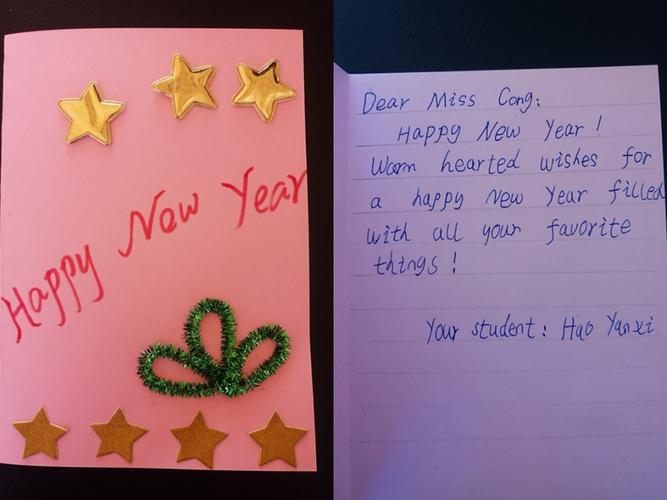 Happy New Year
Dear Miss Cong:
Happy New Year!
Warm hearted wishes for
a happy New Year filled
with all your favorite
things!
Your student: Hao Yanxi